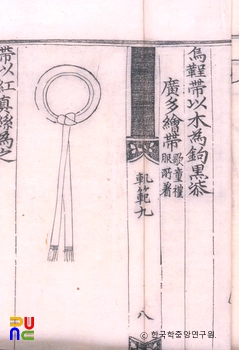 烏鞓帶以木為鉤黑漆
廣多繪帶
歌童
服所着
軌範九
八
帶以紅真絲為之
ⓒ 한국학중앙연구원.